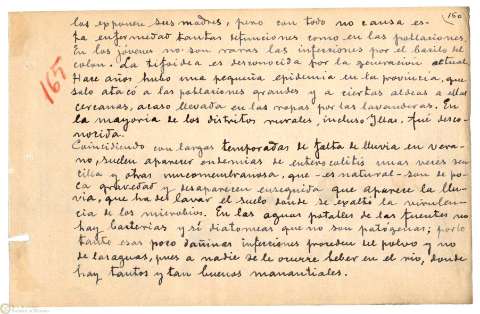 160
165
los exponen sus madres, pero con todo no causa es-
ta enfermedad tantas defunciones como en las poblaciones.
En los jóvenes no son raras las infecciones por el bacilo del
colon. La tifoidea es desconocida por la generación actual.
Hace años hubo una pequeña epidemia en la provincia, que
solo atacó a las poblaciones grandes y a ciertas aldeas a ellas
cercanas, acaso llevada en las ropas por las lavanderas. En
la mayoria de los distritos rurales, incluso fué desco-
nocida.
Coincidiendo con largas temporadas de falta de lluvia en vera-
no, suelen aparecer endemias de enterocolitis unas veces sen-
cilla y otras mucomembranosa, que -es natural- son de po-
ca gravedad y desaparecen enseguida que aparece la llu-
via, que ha de lavar el suelo donde se exaltó la virulen-
cia de los microbios. En las aguas potables de las fuentes no
hay bacterias y sí diatomeas que no son patógenas; por lo
tanto esas poco dañinas infecciones proceden del polvo y no
de las aguas, pues a nadie se le ocurre beber en el rio, donde
hay tantos y tan buenos manantiales.